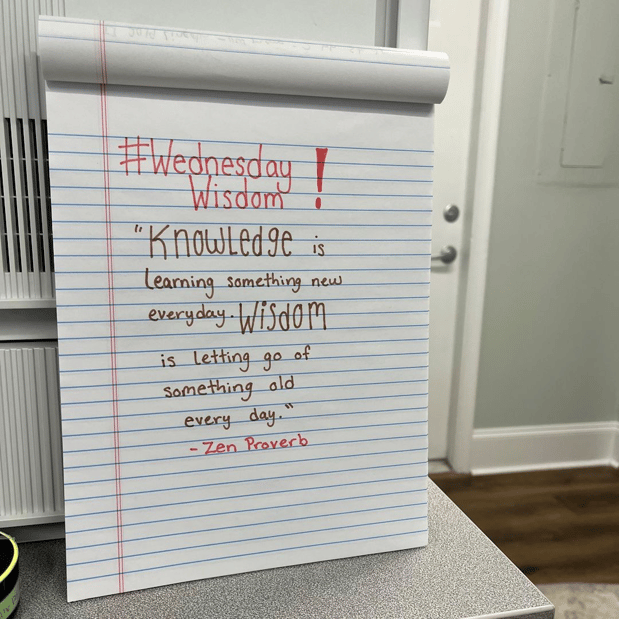 #Wednesday
Wisdom!
"Knowledge is
learning something new
everyday. Wisdom
is letting go of
something old
every day."
- Zen Proverb